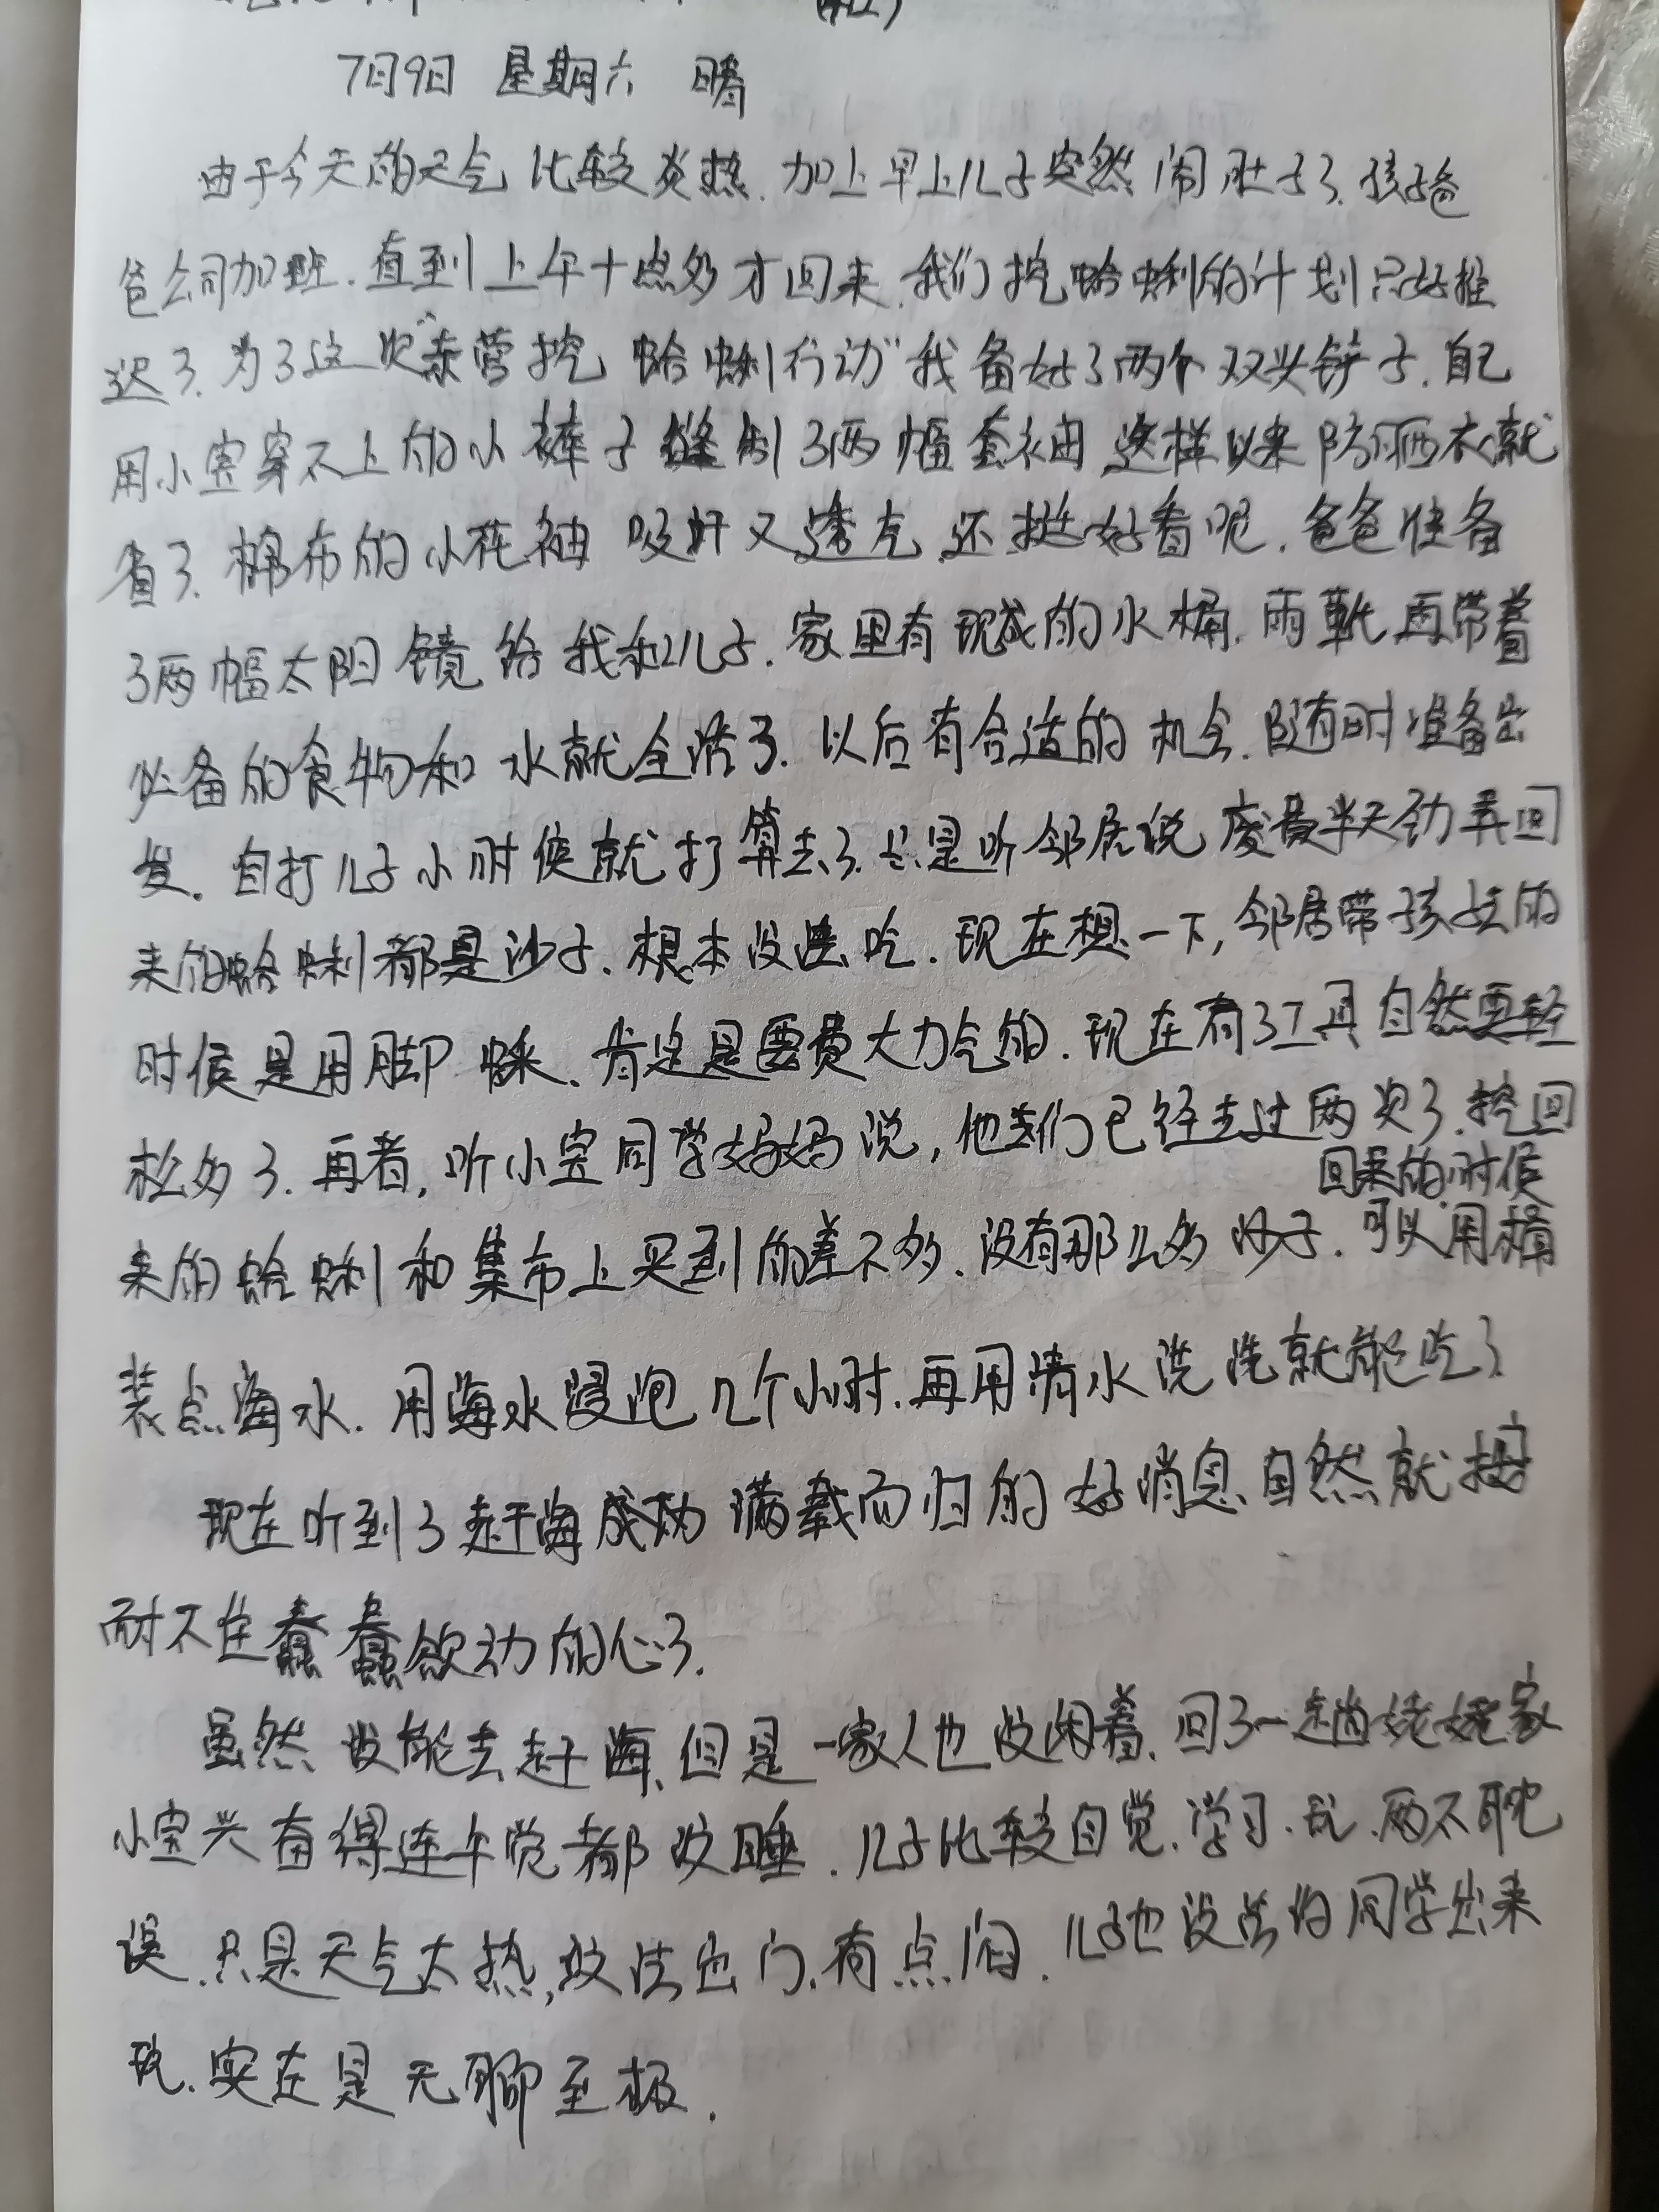 7月9日 星期六 晴
由于今天的天气比较炎热.加上早上儿子突然闹肚子了.孩子爸
爸公司加班.直到上午十点多才回来.我们挖蛤蜊的计划只好推
迟了.为了这次“东营挖蛤蜊行动”我备好了两个双头铲子.自己
用小宝穿不上的小裤子缝制了两幅套袖 这样以来防晒衣就
省了.棉布的小花袖 吸汗又透气.还挺好看呢.爸爸准备
了两幅太阳镜给我和儿子.家里有现成的水桶.雨靴 再带着
必备的食物和水就全活了.以后有合适的机会.随时准备出
发.自打儿子小时候就打算去了.总是听邻居说废费半天劲弄回
来的蛤蜊都是沙子.根本没法吃.现在想一下,邻居带孩子去的
时候是用脚踩.肯定是要费大力气的.现在有了工具自然要轻
松多了.再者,听小宝同学妈妈说,他们已经去过两次了.挖回
回来的时候
来的蛤蜊和集市上买到的差不多.没有那么多沙子.可以用桶
装点海水.用海水浸泡几个小时.再用清水洗洗就能吃了
现在听到了赶海成功满载而归的好消息.自然就按
耐不住蠢蠢欲动的心了.
虽然没能去赶海.但是一家人也没闲着.回了一趟姥姥家
小宝兴奋得连午觉都没睡.儿子比较自觉.学习.玩.两不耽
误.只是天气太热,没法出门.有点闷.儿子也没法约同学出来
玩.实在是无聊至极.